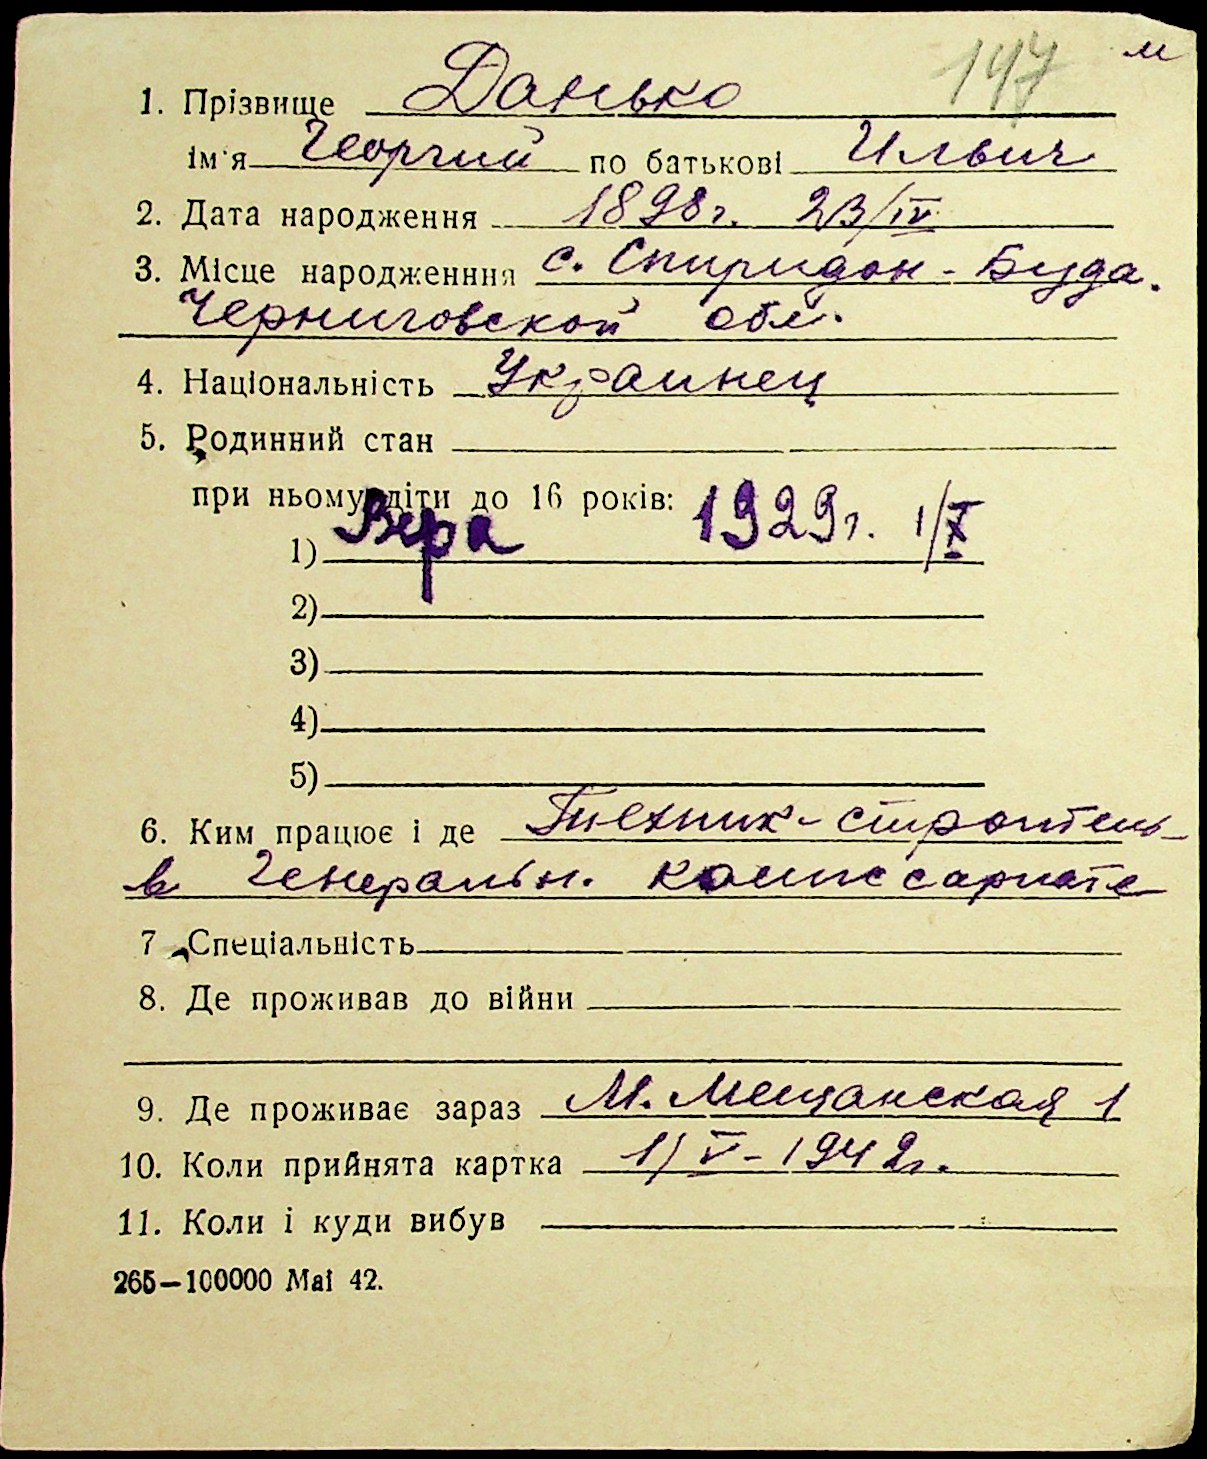 147 м
1. Прізвище Данько
ім'я Георгий по батькові Ильич
2. Дата народження 1898г. 23/IV
3. Місце народженння с. Спиридон-Буда.
Черниговской обл.
4. Національність Украинец
5. Родинний стан
при ньому діти до 16 років:
1) Вера 1929г. 1/X
2)
3)
4)
5)
6. Ким працює і де Техник-строитель
в Генеральн. комиссариате
7 Спеціальність
8. Де проживав до війни
9. Де проживає зараз М. Мещанская 1
10. Коли прийнята картка 1/V-1942г.
11. Коли і куди вибув
265—100000 Маі 42.